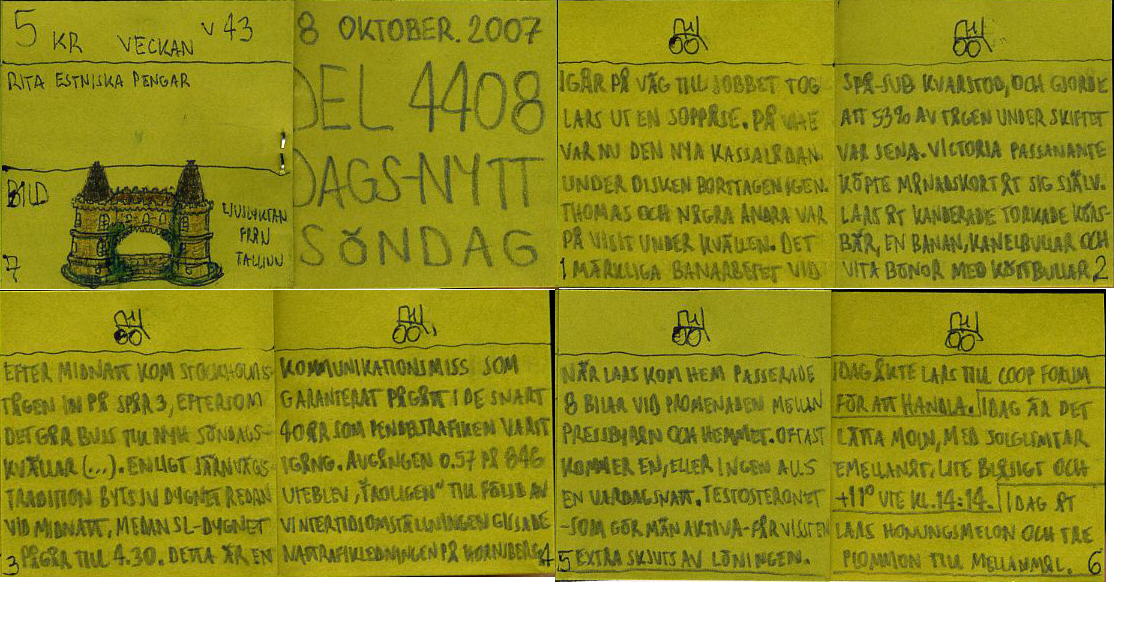 5 KR VECKAN V 43
RITA ESTNISKA PENGAR
BILD
LJUSLYKTAN
FRÅN
TALLINN
7
8 OKTOBER. 2007
DEL 4408
DAGS-NYTT
SÖNDAG
IGÅR PÅ VÄG TILL JOBBET TOG
LARS UT EN SOPPÅSE. PÅ
VAR NU DEN NYA KASSALÅDAN
UNDER DISKEN BORTTAGEN IGEN.
THOMAS OCH NÅGRA ANDRA VAR
PÅ VISIT UNDER KVÄLLEN. DET
1 MÄRKLIGA BANARBETET VID
SPÅ-SUB KVARSTOD, OCH GJORDE
ATT 53% AV TÅGEN UNDER SKIFTET
VAR SENA. VICTORIA PASSANANTE
KÖPTE MÅNADSKORT ÅT SIG SJÄLV.
LARS ÅT KANDERADE TORKADE KÖRS-
BÄR, EN BANAN, KANELBULLAR OCH
VITA BÖNOR MED KÖTTBULLAR. 2
EFTER MIDNATT KOM STOCKHOLMS-
TÅGEN IN PÅ SPÅR 3, EFTERSOM
DET GÅR BUSS TILL NYH SÖNDAGS-
KVÄLLAR (...). ENLIGT JÄRNVÄGS-
TRADITION BYTS JU DYGNET REDAN
VID MIDNATT, MEDAN SL-DYGNET
3 PÅGÅR TILL 4.30. DETTA ÄR EN
KOMMUNIKATIONSMISS SOM
GARANTERAT PÅGÅTT I DE SNART
40 ÅR SOM PENDELTRAFIKEN VARIT
IGÅNG. AVGÅNGEN 0.57 PÅ 846
UTEBLEV, "TROLIGEN" TILL FÖLJD AV
VINTERTIDSOMSTÄLLNINGEN GISSADE
NATTRAFIKLEDNINGEN PÅ HORNSBERG. 4
NÄR LARS KOM HEM PASSERADE
8 BILAR VID PROMENADEN MELLAN
PRESSBYRÅN OCH HEMMET. OFTAST
KOMMER EN, ELLER INGEN ALLS
EN VARDAGSNATT. TESTOSTERONET
-SOM GÖR MÄN AKTIVA- FÅR VISST EN
5 EXTRA SKJUTS AV LÖNINGEN.
IDAG ÅKTE LARS TILL COOP FORUM
FÖR ATT HANDLA. IDAG ÄR DET
LÄTTA MOLN, MED SOLGLIMTAR
EMELLANÅT, LITE BLÅSIGT OCH
+11° UTE KL. 14:14. IDAG ÅT
LARS HONUNGSMELON OCH TRE
PLOMMON TILL MELLANMÅL. 6